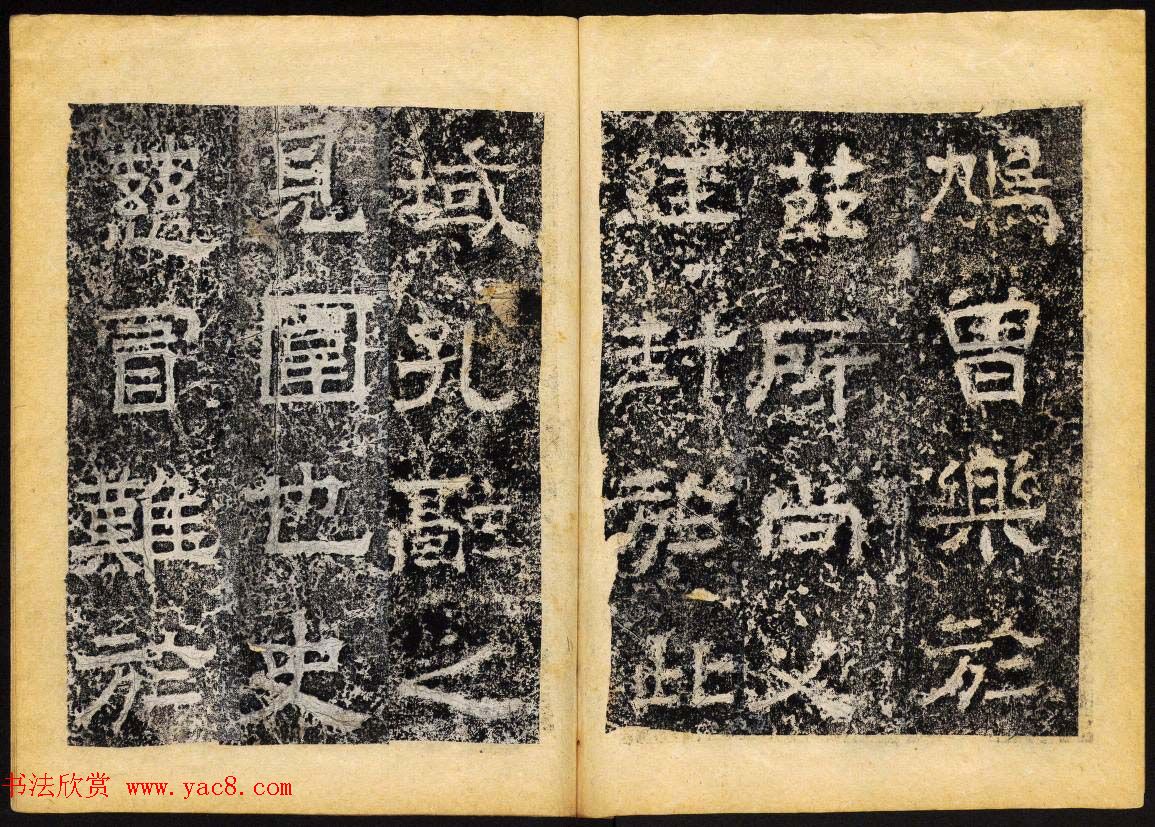 鳩曾樂於
茲所尚父
往封於此
域孔融之
見圍也史
慈冒難於
书法欣赏 www.yac8.com